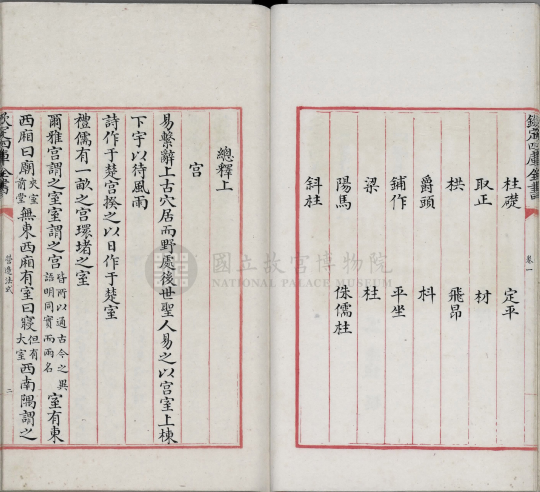 欽定四庫全書
卷一
柱礎　定平
取正　材
栱　飛昂
爵頭　枓
鋪作　平坐
梁　柱
陽馬　侏儒柱
斜柱
總釋上
宮
易繫辭上古穴居而野處後世聖人易之以宮室上棟
下宇以待風雨
詩作于楚宮揆之以日作于楚室
禮儒有一畝之宮環堵之室
爾雅宮謂之室室謂之宮皆所以通古今之異語明同實而兩名室有東
西廂曰廟夾室前堂無東西廂有室曰寢但有大室西南隅謂之
欽定四庫全書
營造法式
二
國立故宮博物院
NATIONAL PALACE MUSEUM